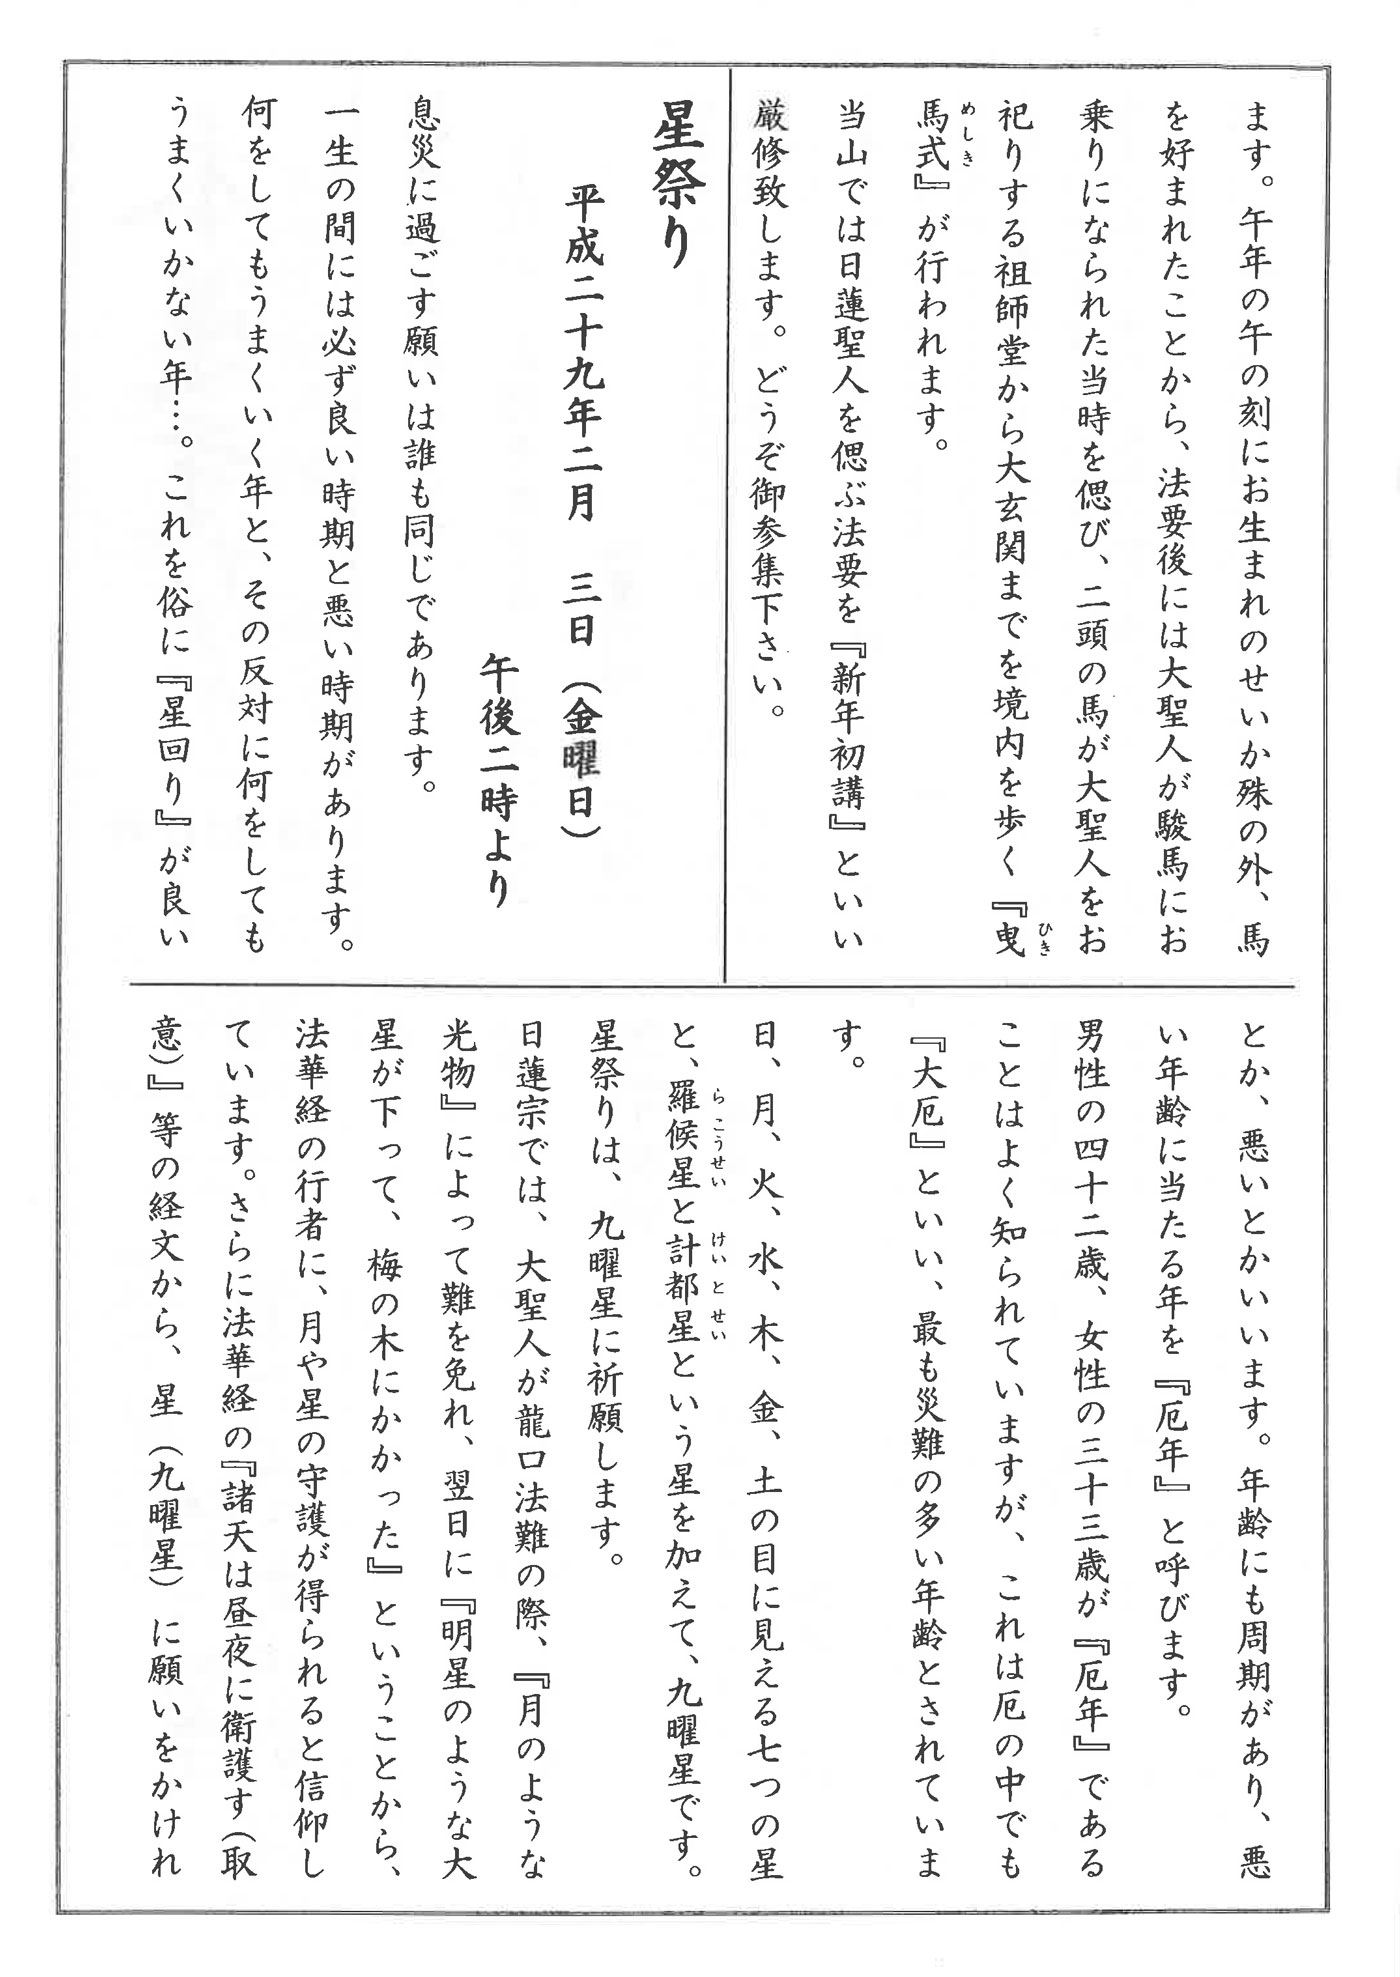 ます。午年の午の刻にお生まれのせいか殊の外、馬
を好まれたことから、法要後には大聖人が駿馬にお
乗りになられた当時を偲び、二頭の馬が大聖人をお
祀りする祖師堂から大玄関までを境内を歩く『曳
ひき
馬式』が行われます。
めしき
当山では日蓮聖人を偲ぶ法要を『新年初講』といい
厳修致します。どうぞ御参集下さい。
星祭り
平成二十九年二月　三日（金曜日）
午後二時より
息災に過ごす願いは誰も同じであります。
一生の間には必ず良い時期と悪い時期があります。
何をしてもうまくいく年と、その反対に何をしても
うまくいかない年…。これを俗に『星回り』が良い
とか、悪いとかいいます。年齢にも周期があり、悪
い年齢に当たる年を『厄年』と呼びます。
男性の四十二歳、女性の三十三歳が『厄年』である
ことはよく知られていますが、これは厄の中でも
『大厄』といい、最も災難の多い年齢とされていま
す。
日、月、火、水、木、金、土の目に見える七つの星
と、羅候星と計都星という星を加えて、九曜星です。
らこうせい　けいとせい
星祭りは、九曜星に祈願します。
日蓮宗では、大聖人が龍口法難の際、『月のような
光物』によって難を免れ、翌日に『明星のような大
星が下って、梅の木にかかった』ということから、
法華経の行者に、月や星の守護が得られると信仰し
ています。さらに法華経の『諸天は昼夜に衛護す（取
意）』等の経文から、星（九曜星）に願いをかけれ